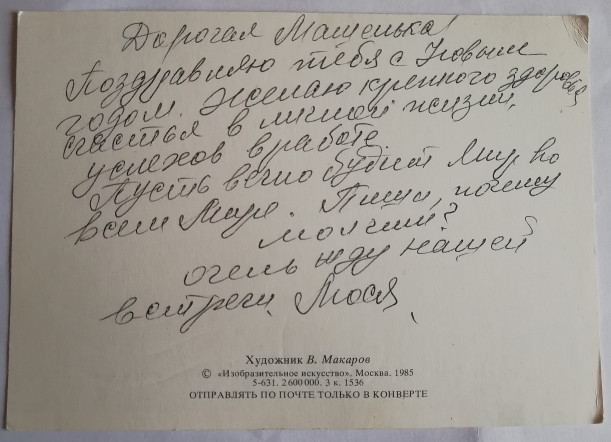 Дорогая Машенька!
Поздравляю тебя с Новым
годом. Желаю крепного здоровья
счастья в личной жизни,
успехов в работе
Пусть вечно будит Мир во
всем Мире. Пиши, почему
молчиш?
очень жду нашей
встречи. Мося.
Художник В. Макаров
© «Изобразительное искусство». Москва. 1985
5-631. 2 600 000. 3 к. 1536
ОТПРАВЛЯТЬ ПО ПОЧТЕ ТОЛЬКО В КОНВЕРТЕ